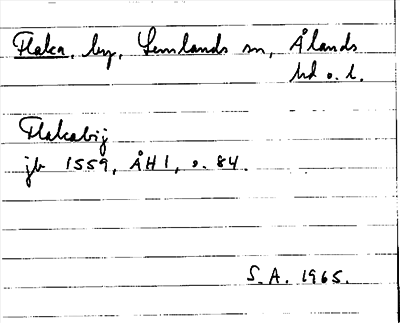 Flaka, by, Lemlands sn, Ålands
hd o. l.
Flakabij
jb 1559, ÅH 1, s. 84.
S. A. 1965.